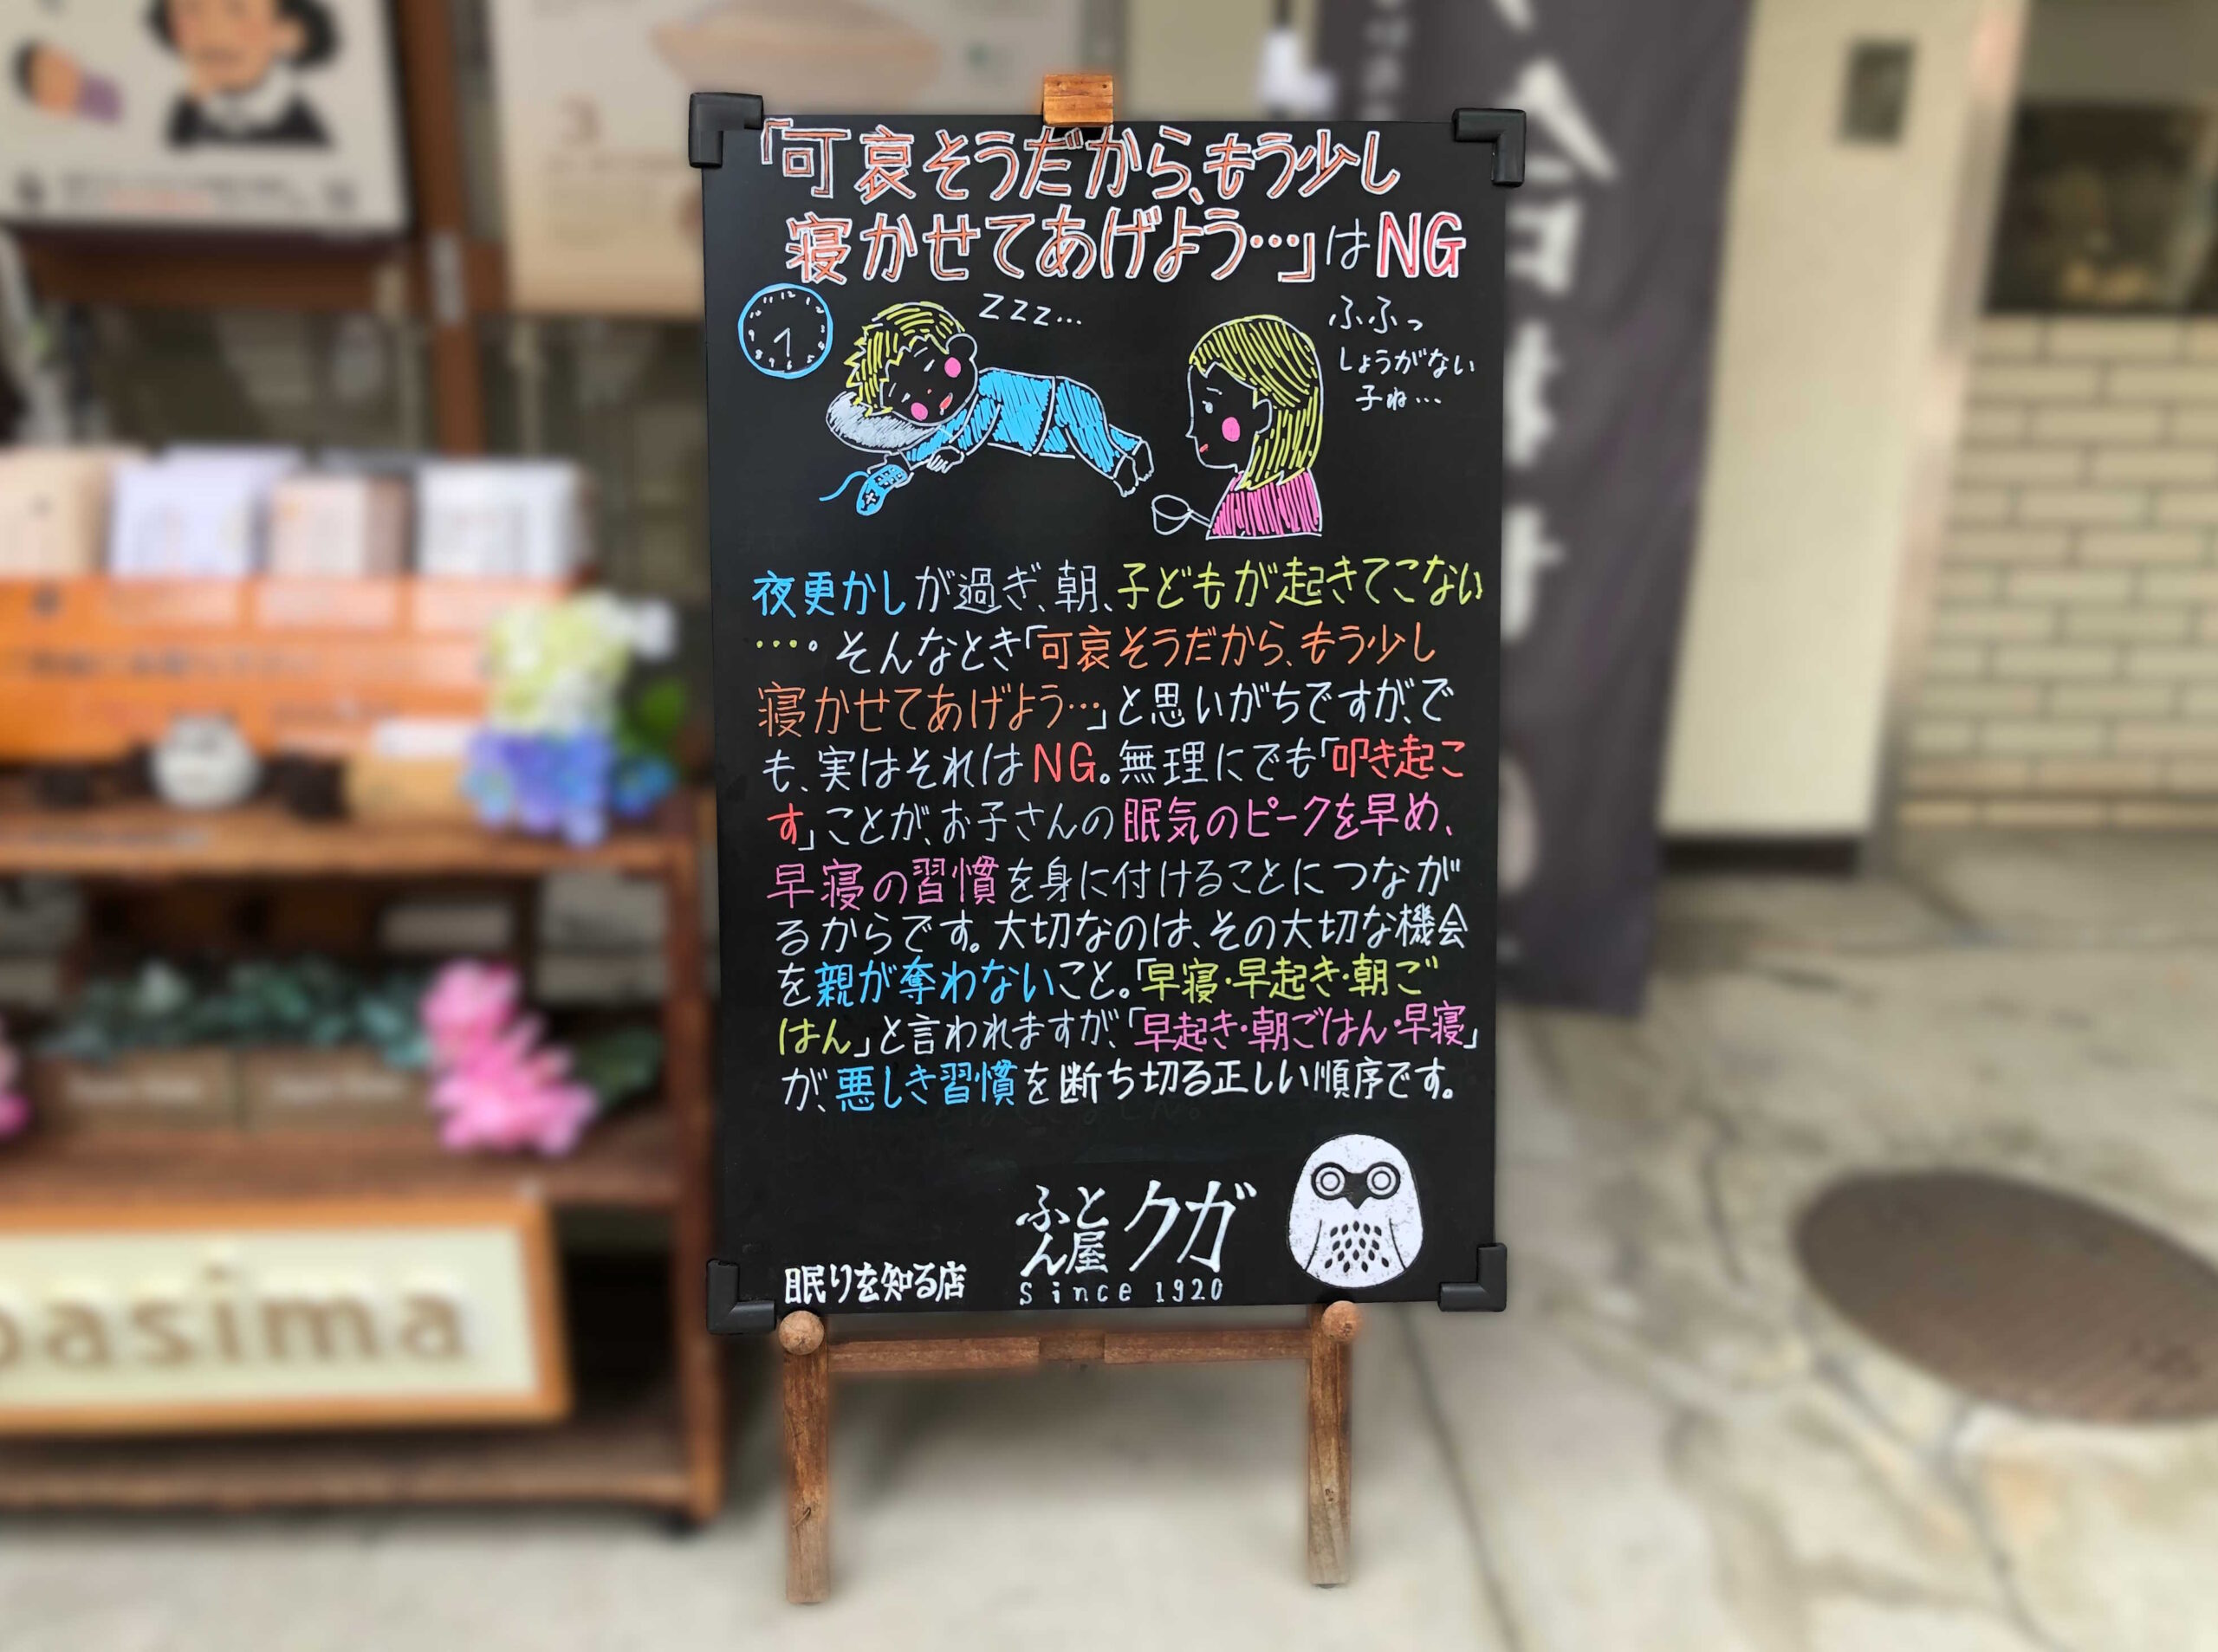 「可哀そうだから、もう少し
寝かせてあげよう…」はNG
zzz…
ふふっ
しょうがない
子ね…
夜更かしが過ぎ、朝、子どもが起きてこない
…。そんなとき「可哀そうだから、もう少し
寝かせてあげよう…」と思いがちですが、で
も、実はそれはNG。無理にでも「叩き起こ
す」ことが、お子さんの眠気のピークを早め、
早寝の習慣を身に付けることにつなが
るからです。大切なのは、その大切な機会
を親が奪わないこと。「早寝・早起き・朝ご
はん」と言われますが、「早起き・朝ごはん・早寝」
が、悪しき習慣を断ち切る正しい順序です。
眠りを知る店
ふとん屋 クガ
since 1920
pasima